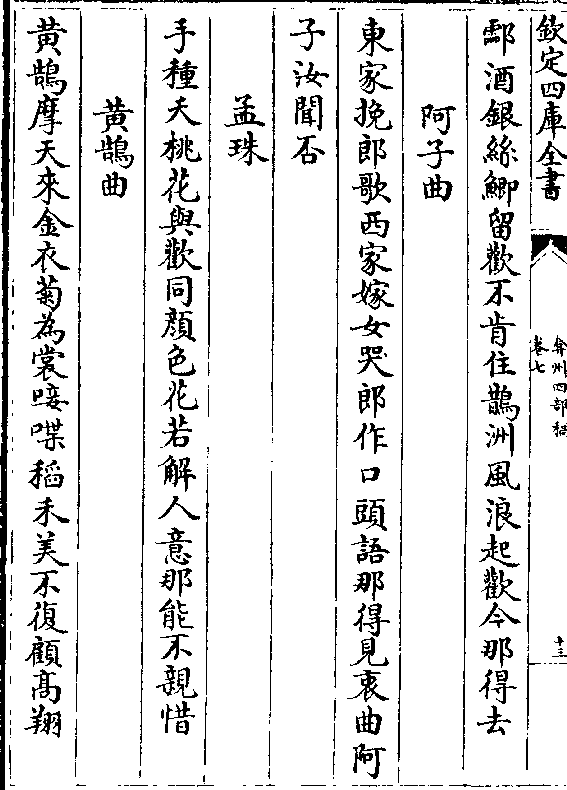 欽定四庫全書
弇州四部稿
卷七
十三
酃酒銀絲鯽留歡不肯住鵲洲風浪起歡今那得去
阿子曲
東家挽郎歌西家嫁女哭郎作口頭語那得見衷曲阿
子汝聞否
孟珠
手種夭桃花與歡同顔色花若解人意那能不親惜
黄鵠曲
黄鵠摩天來金衣菊為裳唼喋稻禾美不復顧髙翔